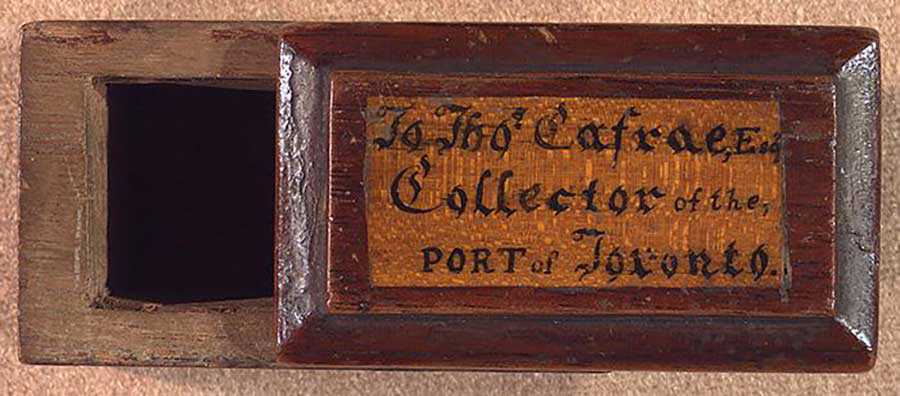 To Thoˢ Cafrae, Esq
Collector of the,
PORT of Toronto.